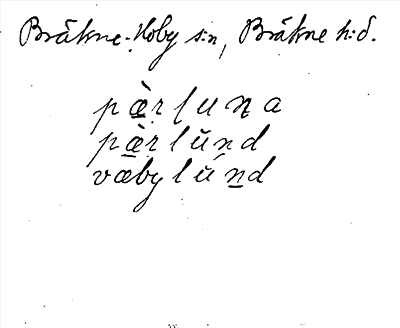 Bräkne-Hoby s:n, Bräkne h:d.
pæ̀r l u n a
pæ̀r l ŭ n d
væby l ŭ́ n d